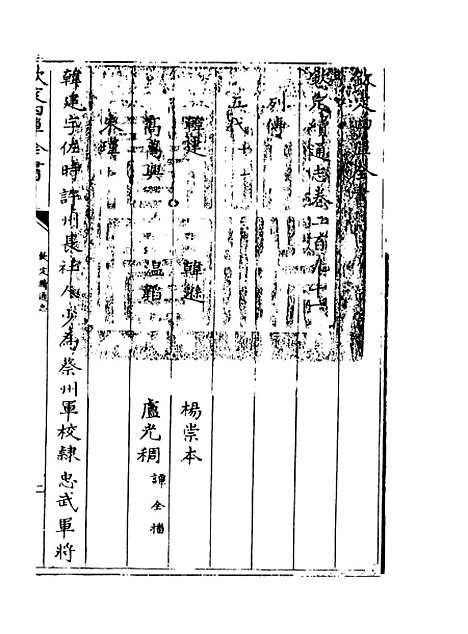 欽定四庫全書
欽定續通志卷二百九十一
列傳
五代
韓建 韓遜 楊崇本
高萬興 温韜 盧光稠 譚全播
朱瑾
韓建字佐時許州長社人少為蔡州軍校隸忠武軍將
欽定四庫全書
欽定續通志